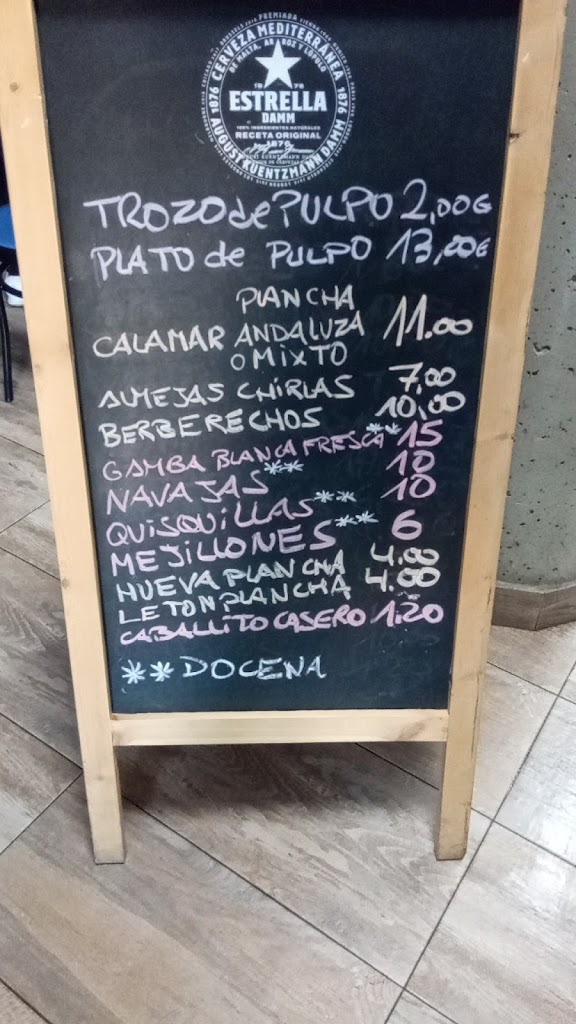 CERVEZA MEDITERRÁNEA
DE MALTA, ARROZ Y LÚPULO
1876 1876
ESTRELLA
DAMM
100% INGREDIENTES NATURALES
RECETA ORIGINAL
1876
AUGUST KUENTZMANN DAMM
TROZO de PULPO 2,00€
PLATO de PULPO 13,00€
PLANCHA
CALAMAR ANDALUZA 11.00
O MIXTO
ALMEJAS CHIRLAS 7,00
BERBERECHOS 10,00
GAMBA BLANCA FRESCA ** 15
NAVAJAS ** 10
QUISQUILLAS ** 10
MEJILLONES ** 6
HUEVA PLANCHA 4.00
LETON PLANCHA 4.00
CABALLITO CASERO 1.20
** DOCENA